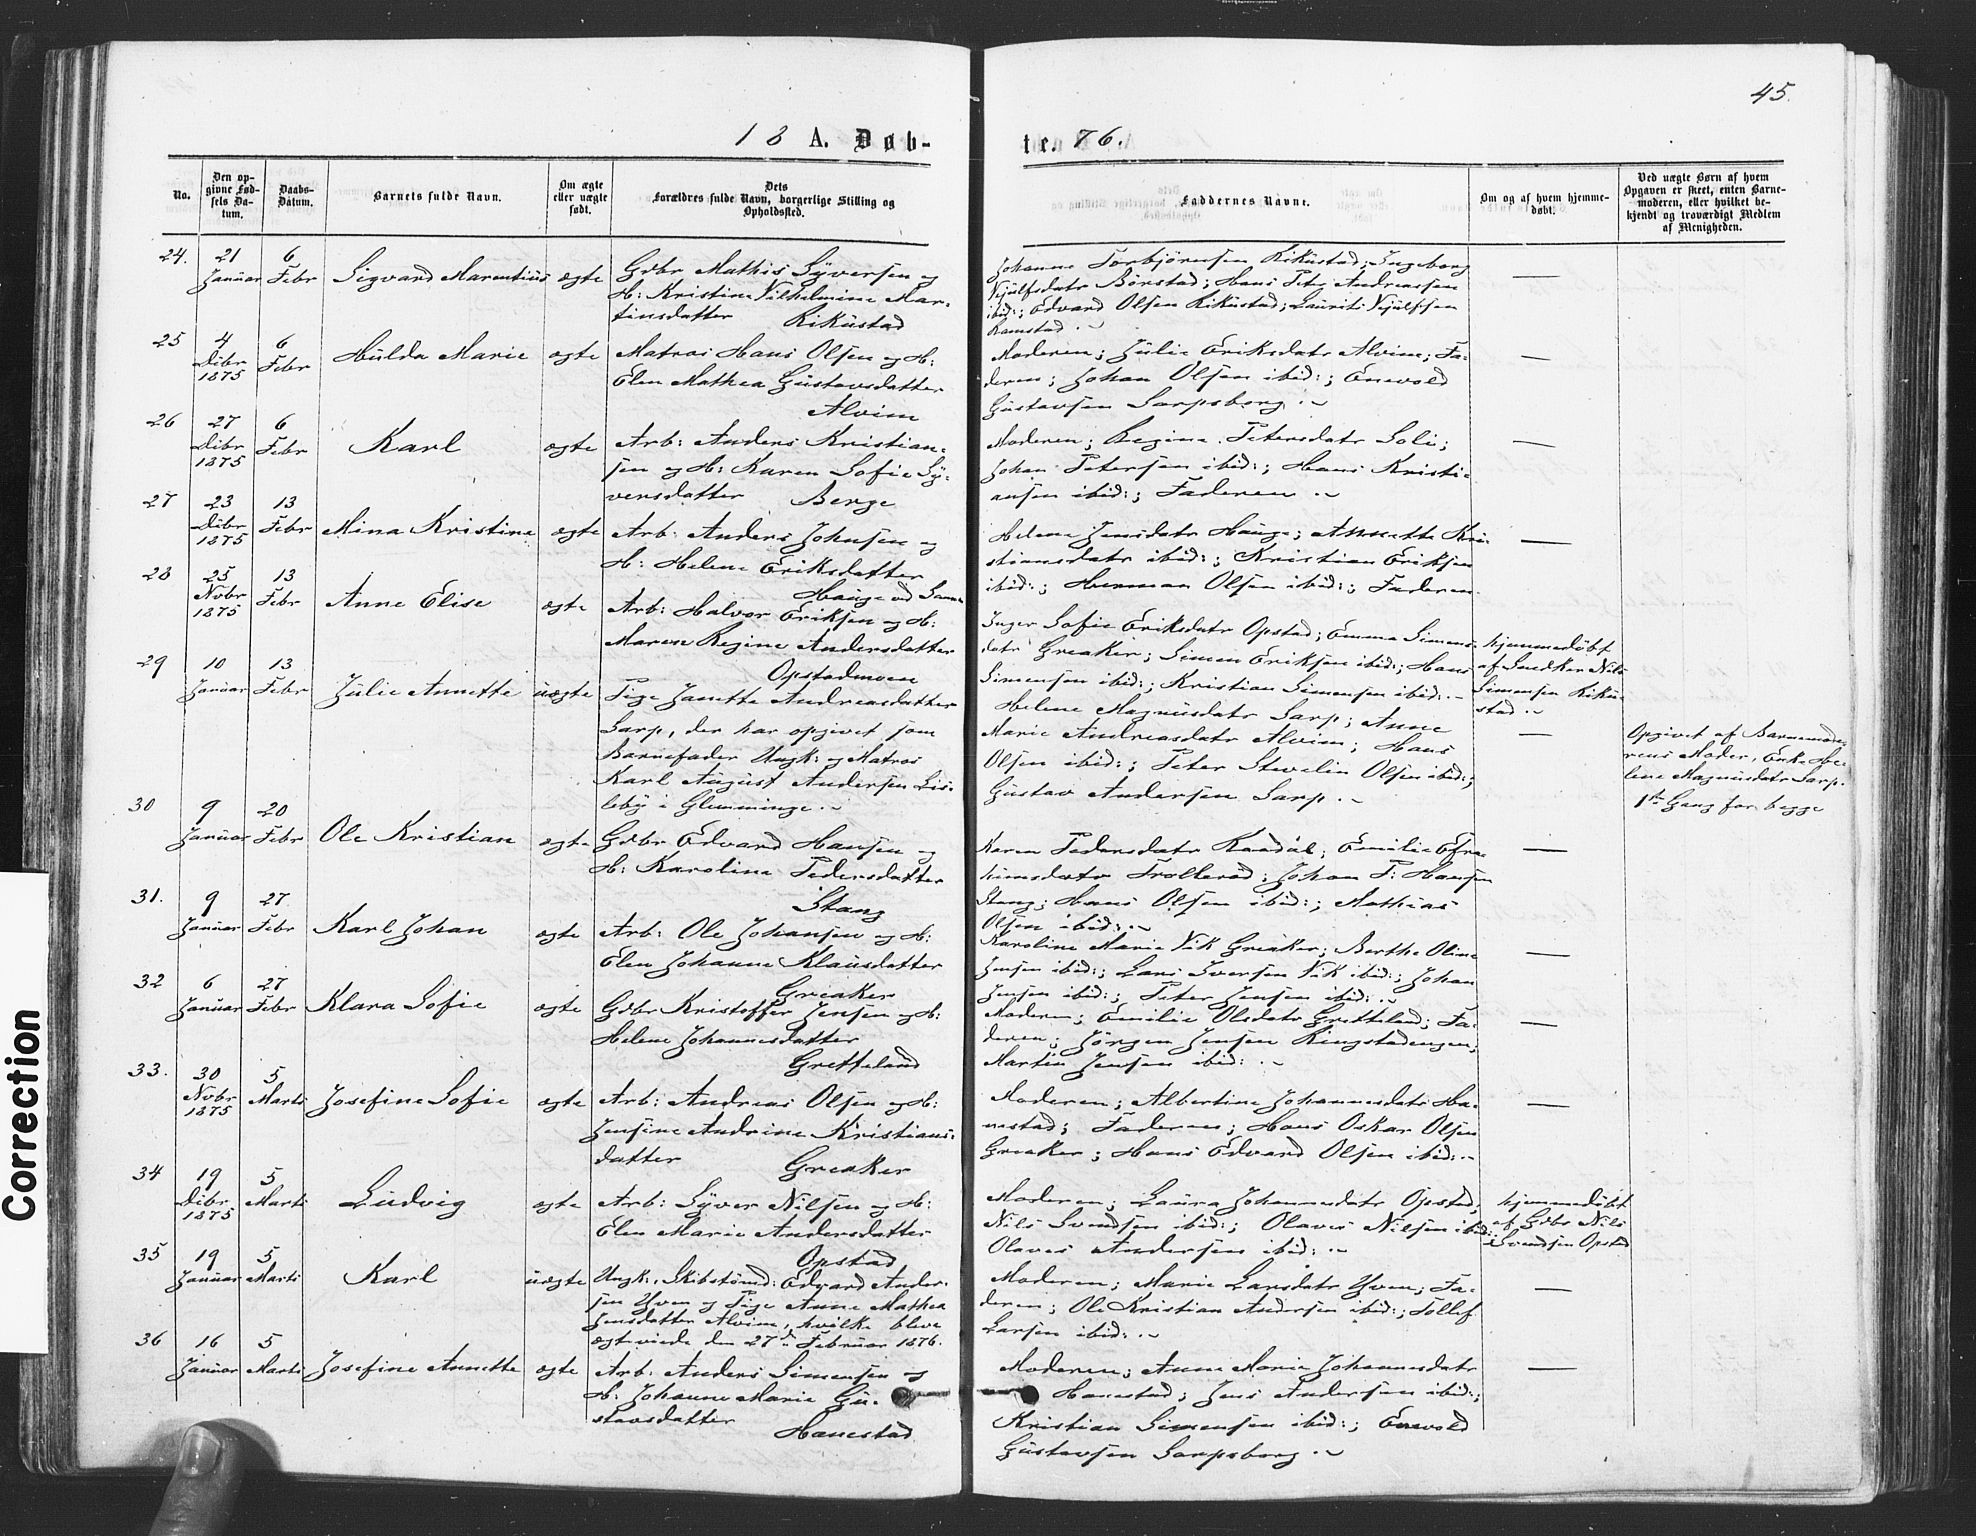 45.
18 A. Døb-
te. 76.
No.
Den op-
givne Fød-
sels Da-
tum.
Daabs-
Datum.
Barnets fulde Navn.
Om ægte
eller uægte
født.
Dets
Forældres fulde Navn, borgerlige Stilling og
Opholdssted.
Faddernes Navne.
Om og af hvem hjemme-
døbt.
Ved uægte Børn af hvem
Opgaven er skeet, enten Barne-
moderen, eller hvilket be-
kjendt og troværdigt Medlem
af Menigheden.
24. 21 Januar 6 Febr Sigvard Marentius ægte
Gdbr Mathis Syversen og
H: Kristine Vilhelmine Mar-
tinsdatter Kikustad
Johanne Torbjörnsen Kikustad; Ingeborg
Kjulfsdatr Börstad; Hans Peter Andreassen
ibid:; Edvard Olsen Kikustad; Laurits Kjulfsen
Ramstad.
—
25 4 Dcbr 1875 6 Febr Hulda Marie ægte
Matros Hans Olsen og H:
Elen Mathea Gustavsdatter
Alvim
Moderen; Julie Eriksdatr Alvim; Fa-
deren; Johan Olsen ibid:; Enevold
Gustavsen Sarpsborg.
—
26 27 Dcbr 1875 6 Febr Karl ægte
Arb: Anders Kristian-
sen og H: Karen Sofie Sy-
versdatter Berge
Moderen; Regine Petersdatr Soli;
Johan Petersen ibid:; Hans Kristi-
ansen ibid:; Faderen.
—
27 23 Dcbr 1875 13 Febr Mina Kristine ægte
Arb: Anders Johnsen og
H: Helene Eriksdatter
Hauge
Helene Jensdatr Hauge; Annette Kri-
stiansdatr ibid:; Kristian Eriksen
ibid:; Herman Olsen ibid:; Faderen.
—
28 25 Novbr 1875 13 Febr Anne Elise ægte
Arb: Halvor Eriksen og H:
Maren Regine Andersdatter
Opstadmoen
Inger Sofie Eriksdatr Opstad; Emma Simens-
datr Greaker; Simen Eriksen ibid:; Hans
Simensen ibid:; Kristian Simensen ibid:.
hjemmedöbt
af Snedker Nils
Simensen Kiku-
stad.
29 10 Januar 13 Febr Julie Annette uægte
Pige Janette Andreasdatter
Sarp, der har opgivet som
Barnefader Ungk: og Matros
Karl August Andersen Lis-
leby i Glemminge.
Helene Magnusdatr Sarp; Anne
Marie Andreasdatr Alvim; Hans
Olsen ibid:; Peter Olsen ibid:;
Gustav Andersen Sarp.
—
Opgivet af Barnemode-
rens Moder, Enke He-
lene Magnusdatr Sarp.
1ste Gang for begge
30 9 Januar 20 Febr Ole Kristian ægte
Gdbr Edvard Hansen og
H: Karoline Pedersdatter
Stang
Karen Pedersdatr; Emilie Efra-
himsdatr Trolleröd; Johan P: Hansen
Stang; Hans Olsen ibid:; Mathias
Olsen ibid:.
—
31. 9 Januar 27 Febr Karl Johan ægte
Arb: Ole Johansen og H:
Elen Johanne Klausdatter
Greaker
Karoline Marie Vik Greaker; Berthe Oline
Jensen ibid:; Lars Iversen Vik ibid:; Johan
Jensen ibid:; Peter Jensen ibid:.
—
32 6 Januar 27 Febr Klara Sofie ægte
Gdbr Kristoffer Jensen og H:
Helene Johannesdatter
Gretteland
Moderen; Emilie Olsdatr Gretteland; Fa-
deren; Jörgen Jensen Ringstadengen;
Martin Jensen ibid:.
—
33. 30 Novbr 1875 5 Marts Josefine Sofie ægte
Arb: Andreas Olsen og H:
Jensine Andrine Kristians-
datter Greaker
Moderen; Albertine Johannesdatr Ha-
nestad; Faderen; Hans Oskar Olsen
Greaker; Hans Edvard Olsen ibid:.
—
34 19 Dcbr 1875 5 Marts Ludvig ægte
Arb: Syver Nilsen og H:
Elen Marie Andersdatter
Opstad
Moderen; Laura Johannesdatr Opstad;
Nils Svendsen ibid:; Olaves Nilsen ibid:;
Olaves Andersen ibid:.
hjemmedöbt
af Gdbr Nils
Svendsen Opstad
35 19 Januar 5 Marts Karl uægte
Ungk: Skibstömd: Edvard Ander-
sen Yven og Pige Anne Mathea
Jensdatter Alvim, hvilke bleve
ægteviede den 27de Februar 1876.
Moderen; Marie Larsdatr Yven; Fa-
deren; Ole Kristian Andersen ibid:; Tollef
Larsen ibid:.
—
36 16 Januar 5 Marts Josefine Annette ægte
Arb: Anders Simensen og
H: Johanne Marie Gu-
stavsdatter
Hanestad
Moderen; Anne Marie Johannesdatr
Hanestad; Jens Andersen ibid:;
Kristian Simensen ibid:; Enevold
Gustavsen Sarpsborg.
—
Correction